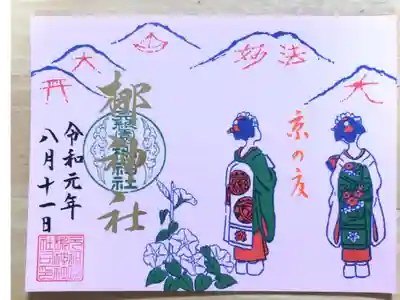 大
妙法
大
京の夏
梛神社
令和元年
八月十一日